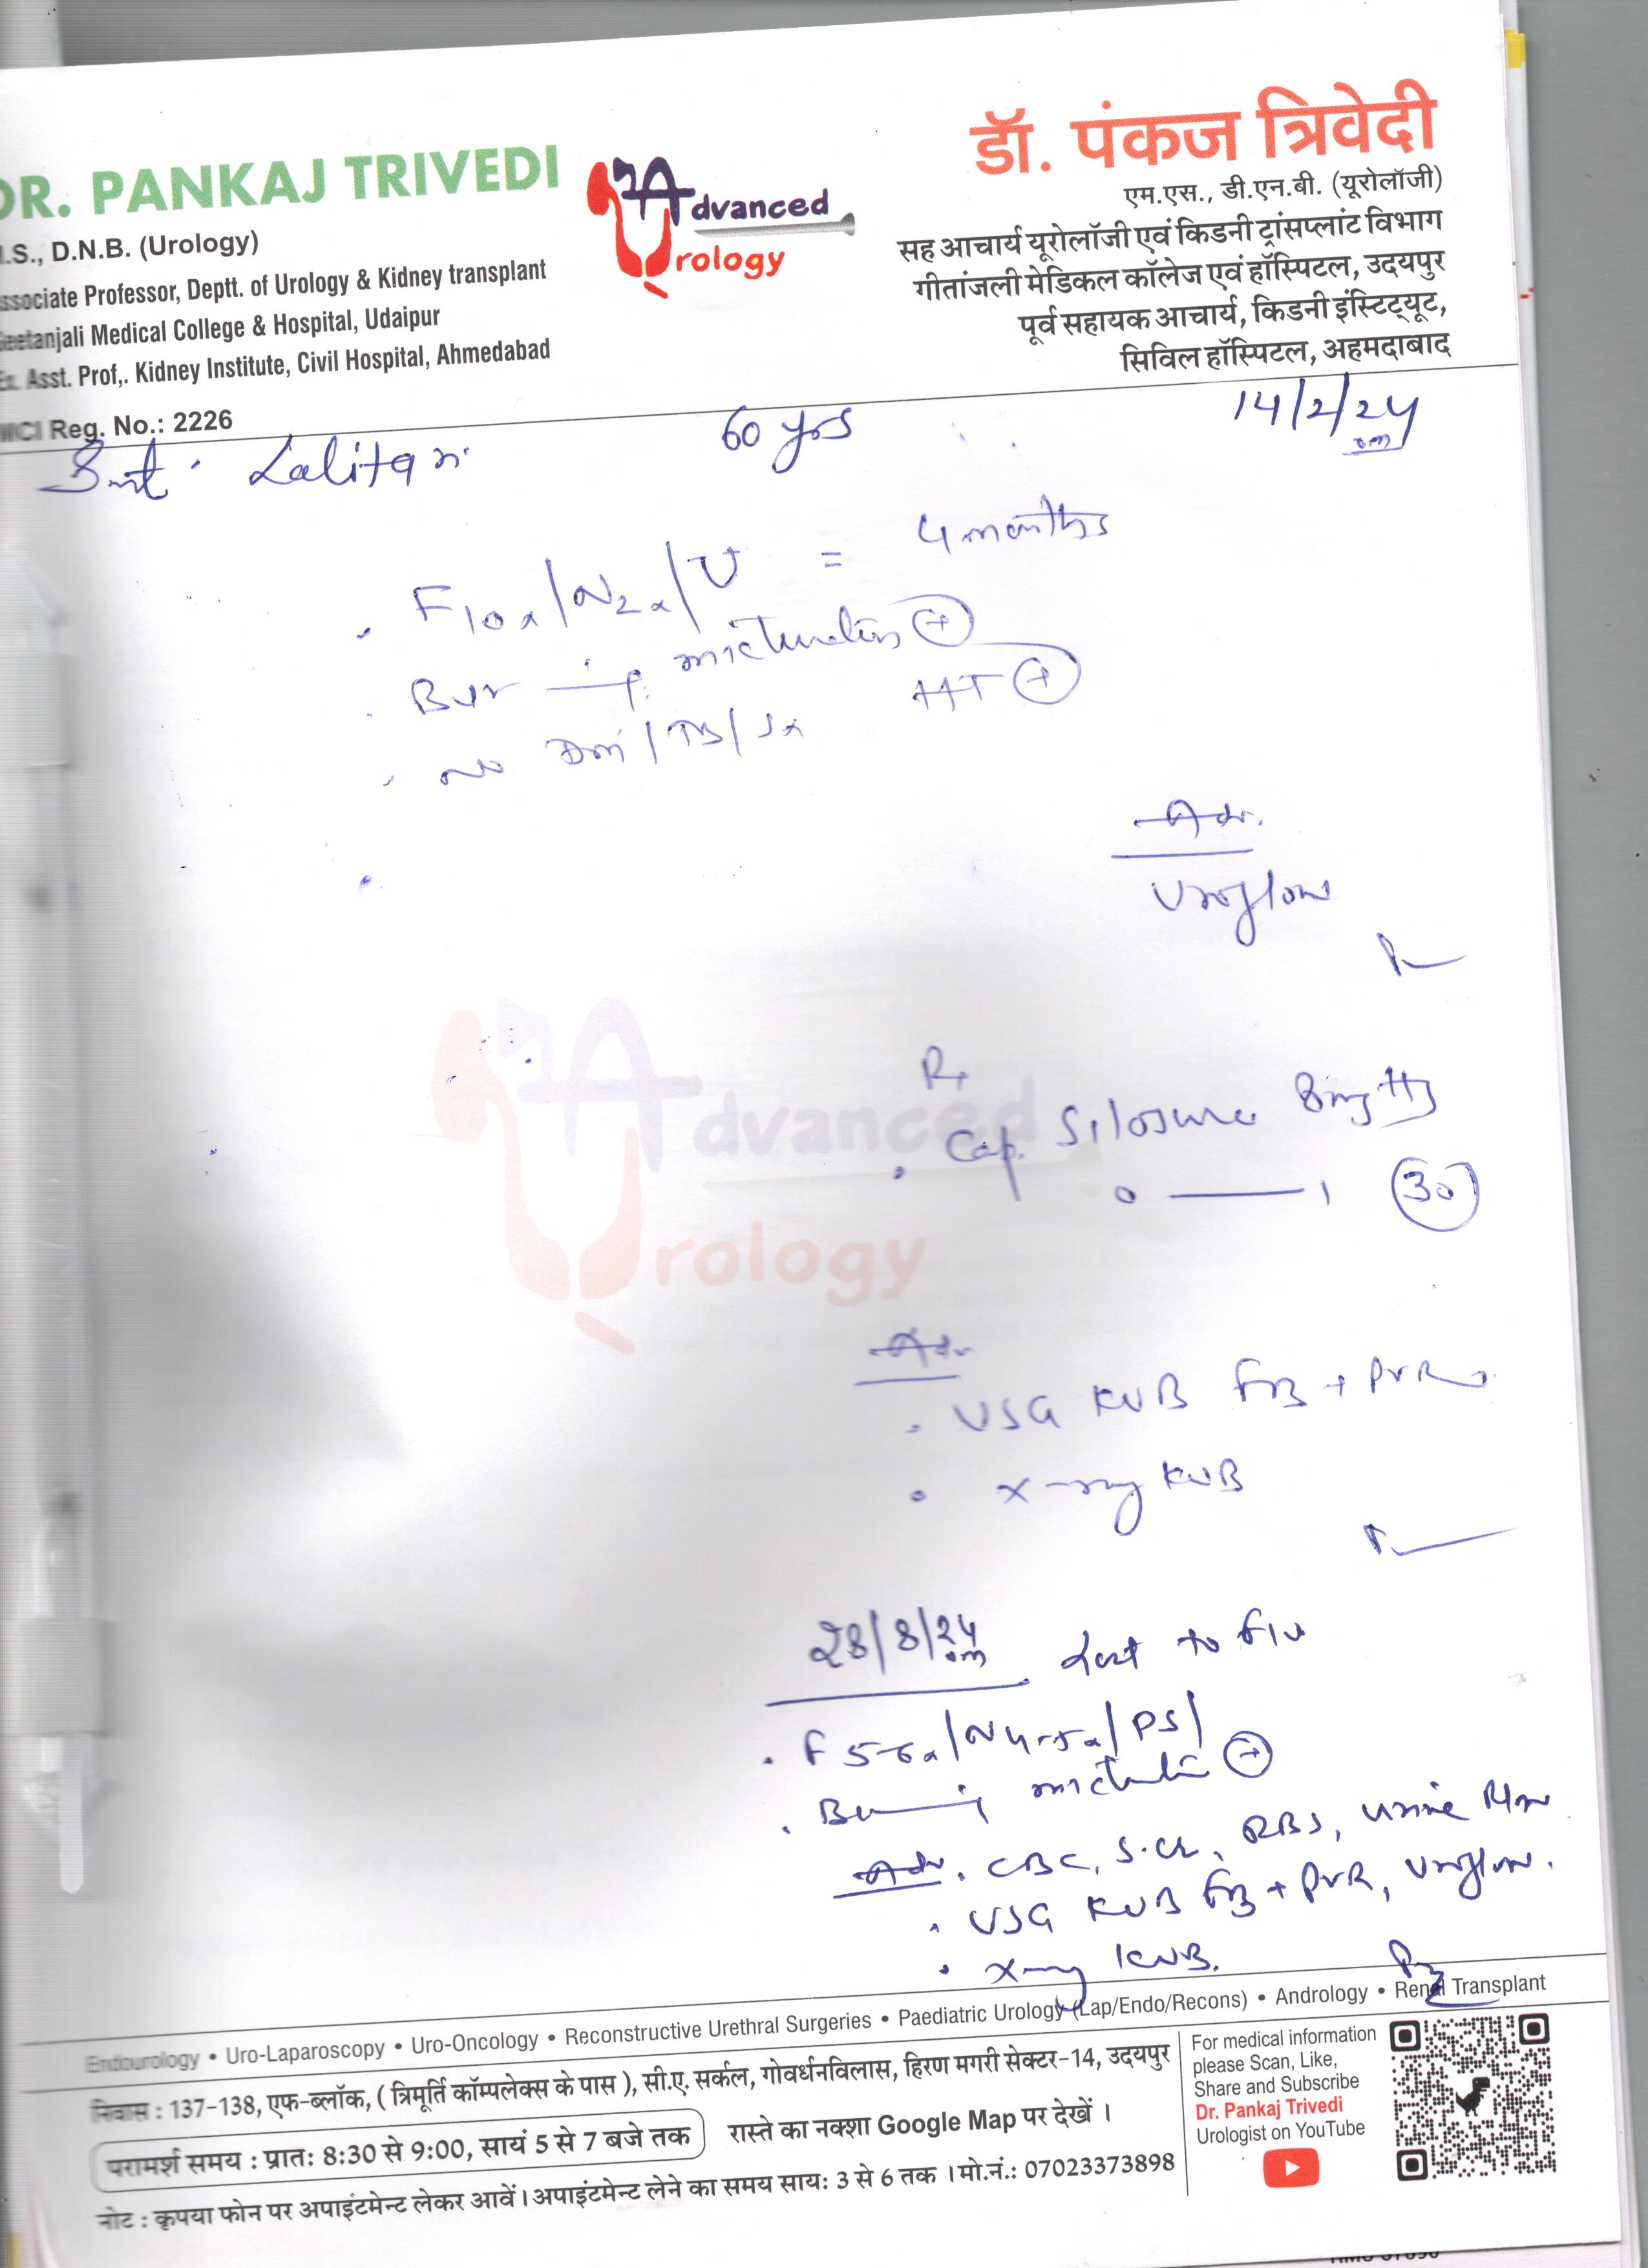 DR. PANKAJ TRIVEDI
.S., D.N.B. (Urology)
ssociate Professor, Deptt. of Urology & Kidney transplant
Geetanjali Medical College & Hospital, Udaipur
Ex. Asst. Prof,. Kidney Institute, Civil Hospital, Ahmedabad
MCI Reg. No.: 2226
Advanced
Urology
डॉ. पंकज त्रिवेदी
एम.एस., डी.एन.बी. (यूरोलॉजी)
सह आचार्य यूरोलॉजी एवं किडनी ट्रांसप्लांट विभाग
गीतांजली मेडिकल कॉलेज एवं हॉस्पिटल, उदयपुर
पूर्व सहायक आचार्य, किडनी इंस्टिट्यूट,
सिविल हॉस्पिटल, अहमदाबाद
Smt. Lalita 60 yrs 14/2/24
F10x/N2x/U = 4 months
micturition +
no DM/TB/Sx
Adv.
Uroflow
Rx
Cap. Silosure 8mg
0 — 1 (30)
Advanced
Urology
Adv
USG KUB + PVR
X-ray KUB
28/8/24 Lost to F/U
F 5-6x/N4-5x/PS/
Burning micturition +
Adv. CBC, S.Cr, RBS, Urine
USG KUB + PVR, Uroflow.
X-ray KUB.
Endourology • Uro-Laparoscopy • Uro-Oncology • Reconstructive Urethral Surgeries • Paediatric Urology (Lap/Endo/Recons) • Andrology • Renal Transplant
निवास : 137-138, एफ-ब्लॉक, ( त्रिमूर्ति कॉम्पलेक्स के पास ), सी.ए. सर्कल, गोवर्धनविलास, हिरण मगरी सेक्टर-14, उदयपुर
परामर्श समय : प्रातः 8:30 से 9:00, सायं 5 से 7 बजे तक रास्ते का नक्शा Google Map पर देखें ।
नोट : कृपया फोन पर अपाइंटमेन्ट लेकर आवें। अपाइंटमेन्ट लेने का समय सायः 3 से 6 तक । मो.नं.: 07023373898
For medical information
please Scan, Like,
Share and Subscribe
Dr. Pankaj Trivedi
Urologist on YouTube